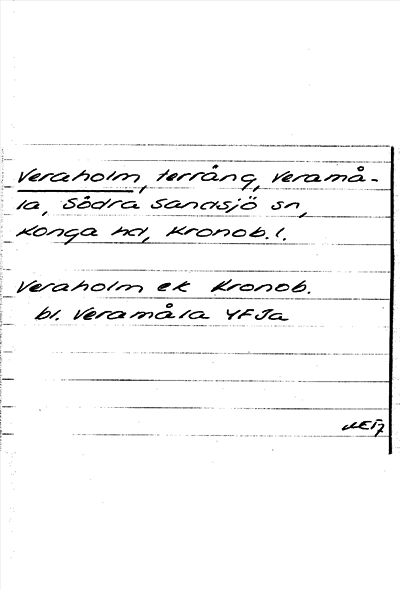 Veraholm, terräng, Veramå-
la, Södra Sandsjö sn,
Konga hd, Kronob. l.
Veraholm ek Kronob.
bl. Veramåla YFJa